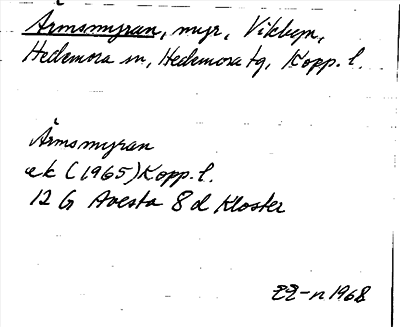 Ärmsmyran, myr, Vikbyn,
Hedemora sn, Hedemora tg, Kopp. l.
Ärmsmyran
ek (1965) Kopp. l.
12 G Avesta 8 d Kloster
1968